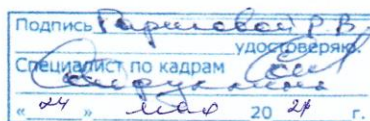 Подпись Гариповой Р.В.
удостоверяю.
Специалист по кадрам
« 24 » мая 20 21 г.